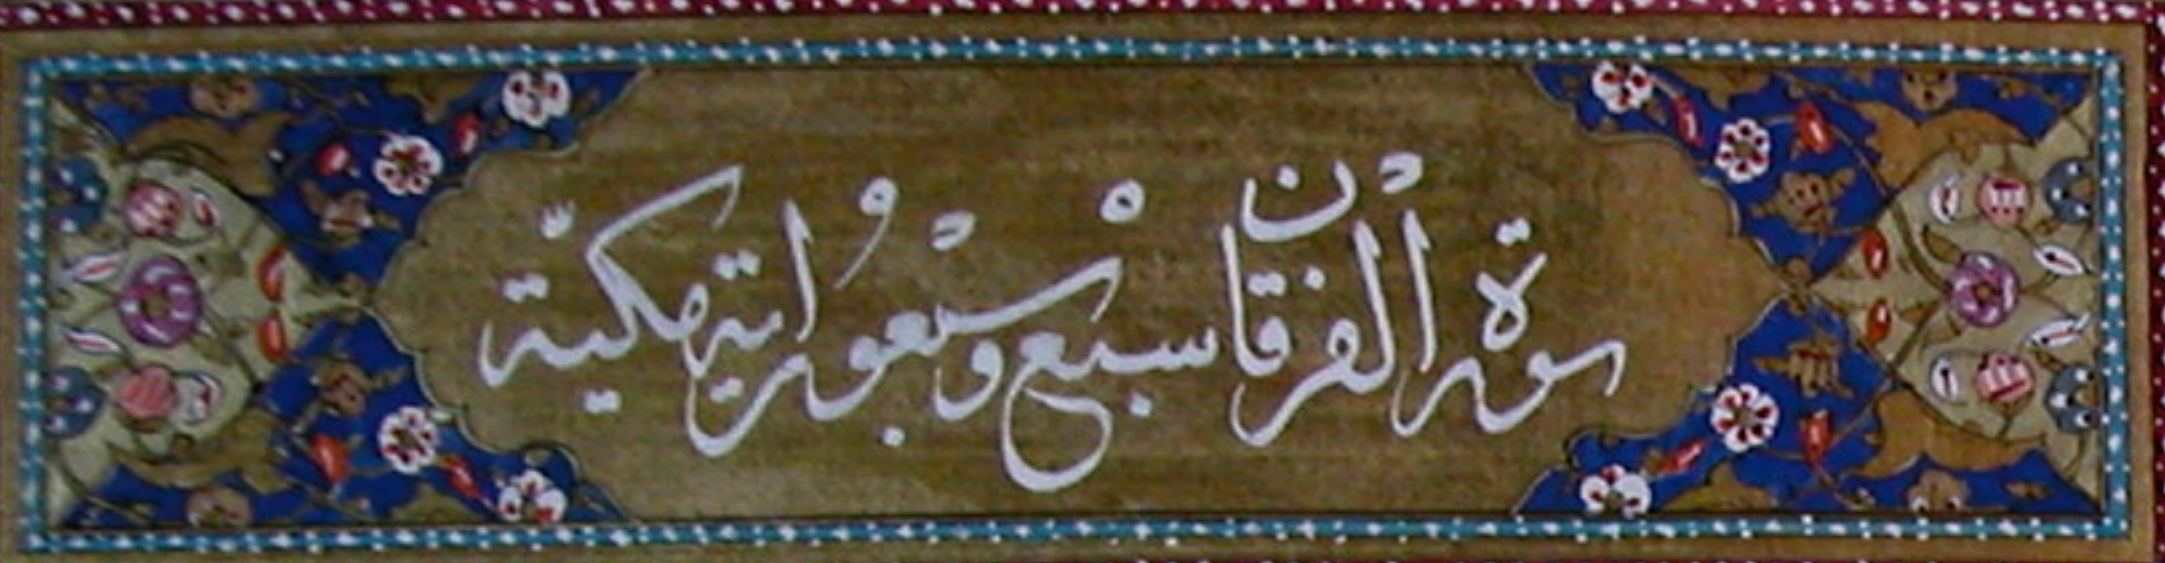 سورة الفرقان سبع وسبعون اية مكية